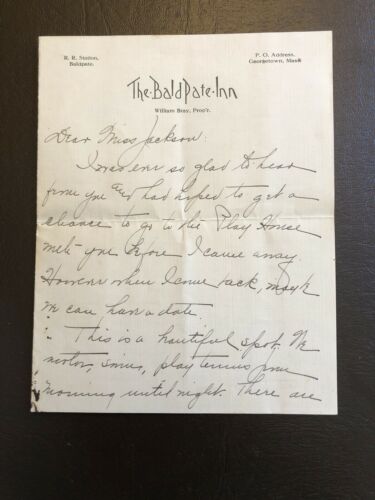 R. R. Station,
Baldpate.
P. O. Address,
Georgetown, Mass.
The·BaldPate·Inn
William Bray, Prop'r.
Dear Miss Jackson:
I was ever so glad to hear
from you and had hoped to get a
chance to go to the Play House
with you before I came away.
However when I come back, maybe
we can have a date.
This is a beautiful spot. We
motor, swim, play tennis from
morning until night. There are